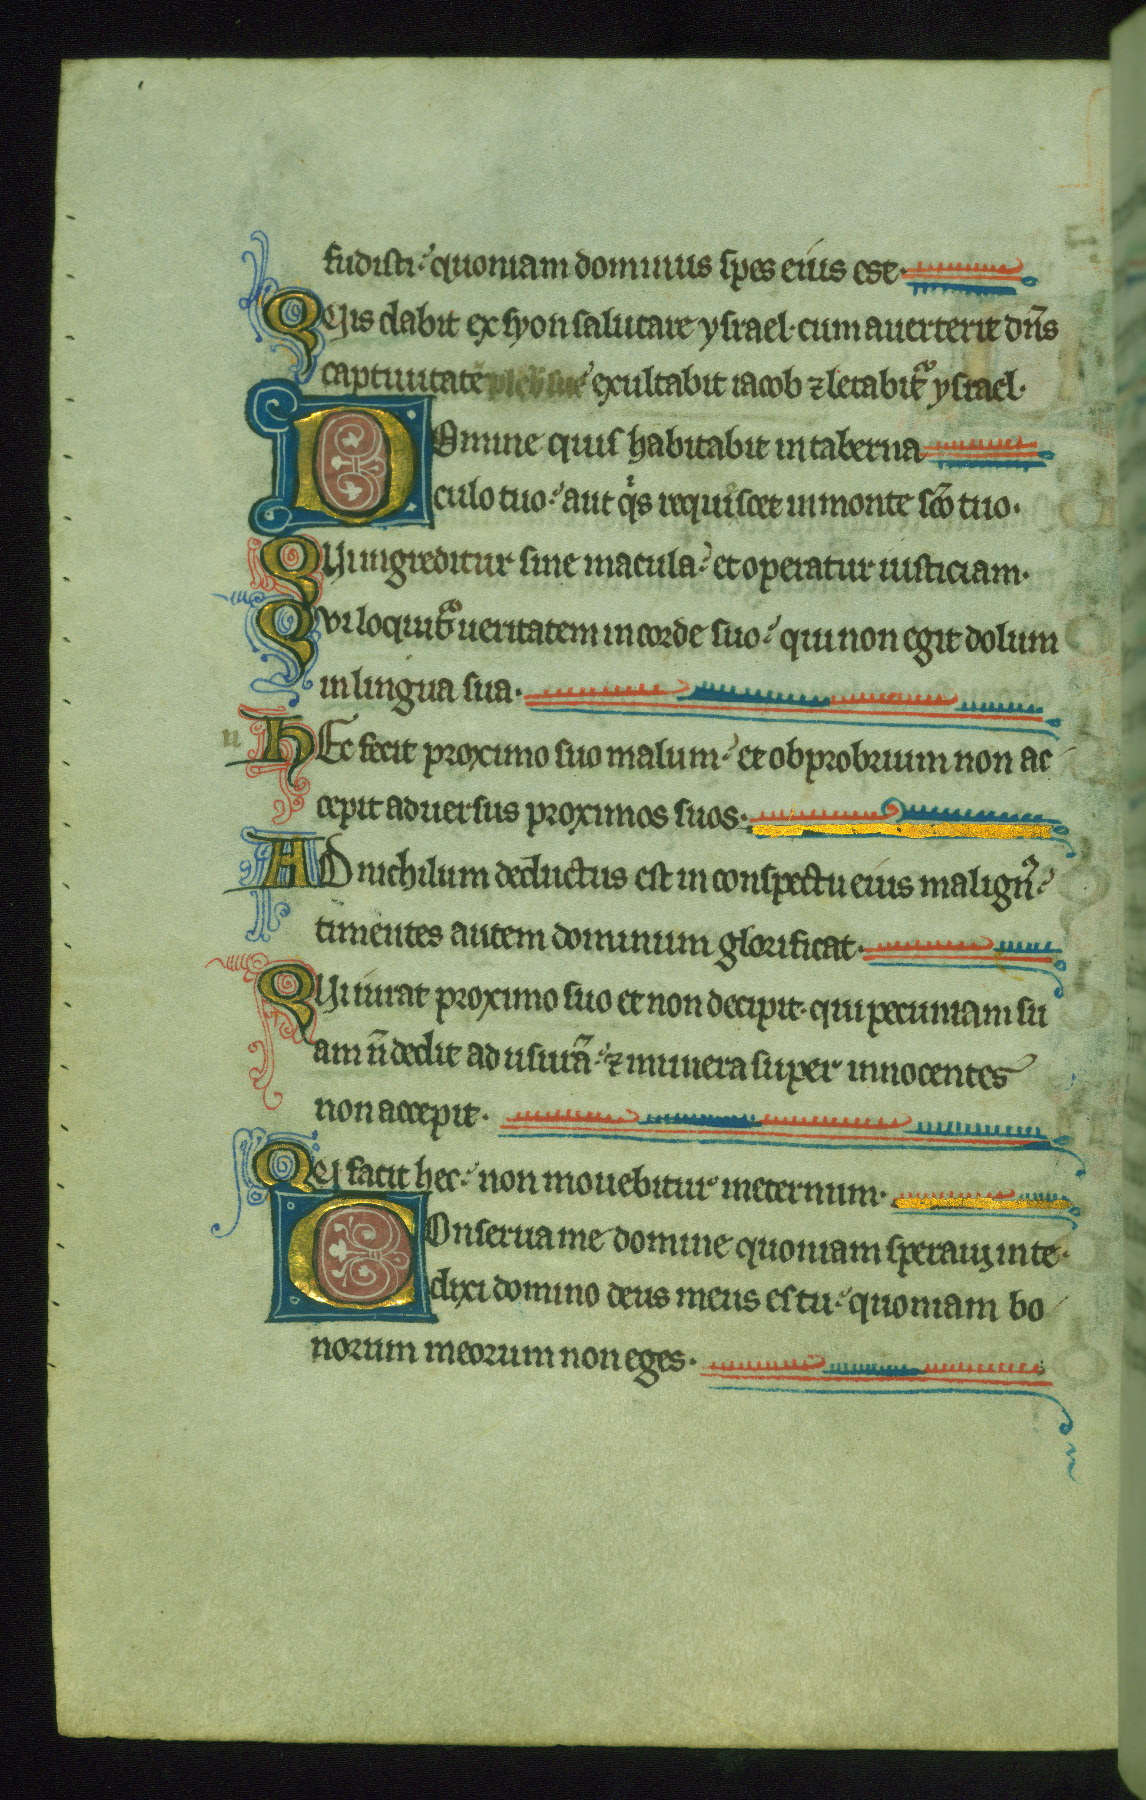 fudisti: quoniam dominus spes eius est.
QUis dabit ex syon salutare ysrael. cum auerterit dñs
captiuitatē plebis sue exultabit iacob ⁊ letabit᷑ ysrael.
DOmine quis habitabit in taberna
culo tuo: aut qͥs requiescet in monte sc̄o tuo.
QUi ingreditur sine macula: et operatur iusticiam.
QVi loquit᷑ ueritatem in corde suo: qui non egit dolum
in lingua sua.
n hEc fecit proximo suo malum: et obprobrium non ac
cepit aduersus proximos suos.
AD nichilum deductus est in conspectu eius malign᷑:
timentes autem dominum glorificat.
QUi iurat proximo suo et non decipit. qui pecuniam su
am n̄ dedit ad usurā: ⁊ munera super innocentes
non accepit.
QUi facit hec: non mouebitur ineternum.
COnserua me domine quoniam speraui in te.
dixi domino deus meus es tu: quoniam bo
norum meorum non eges.